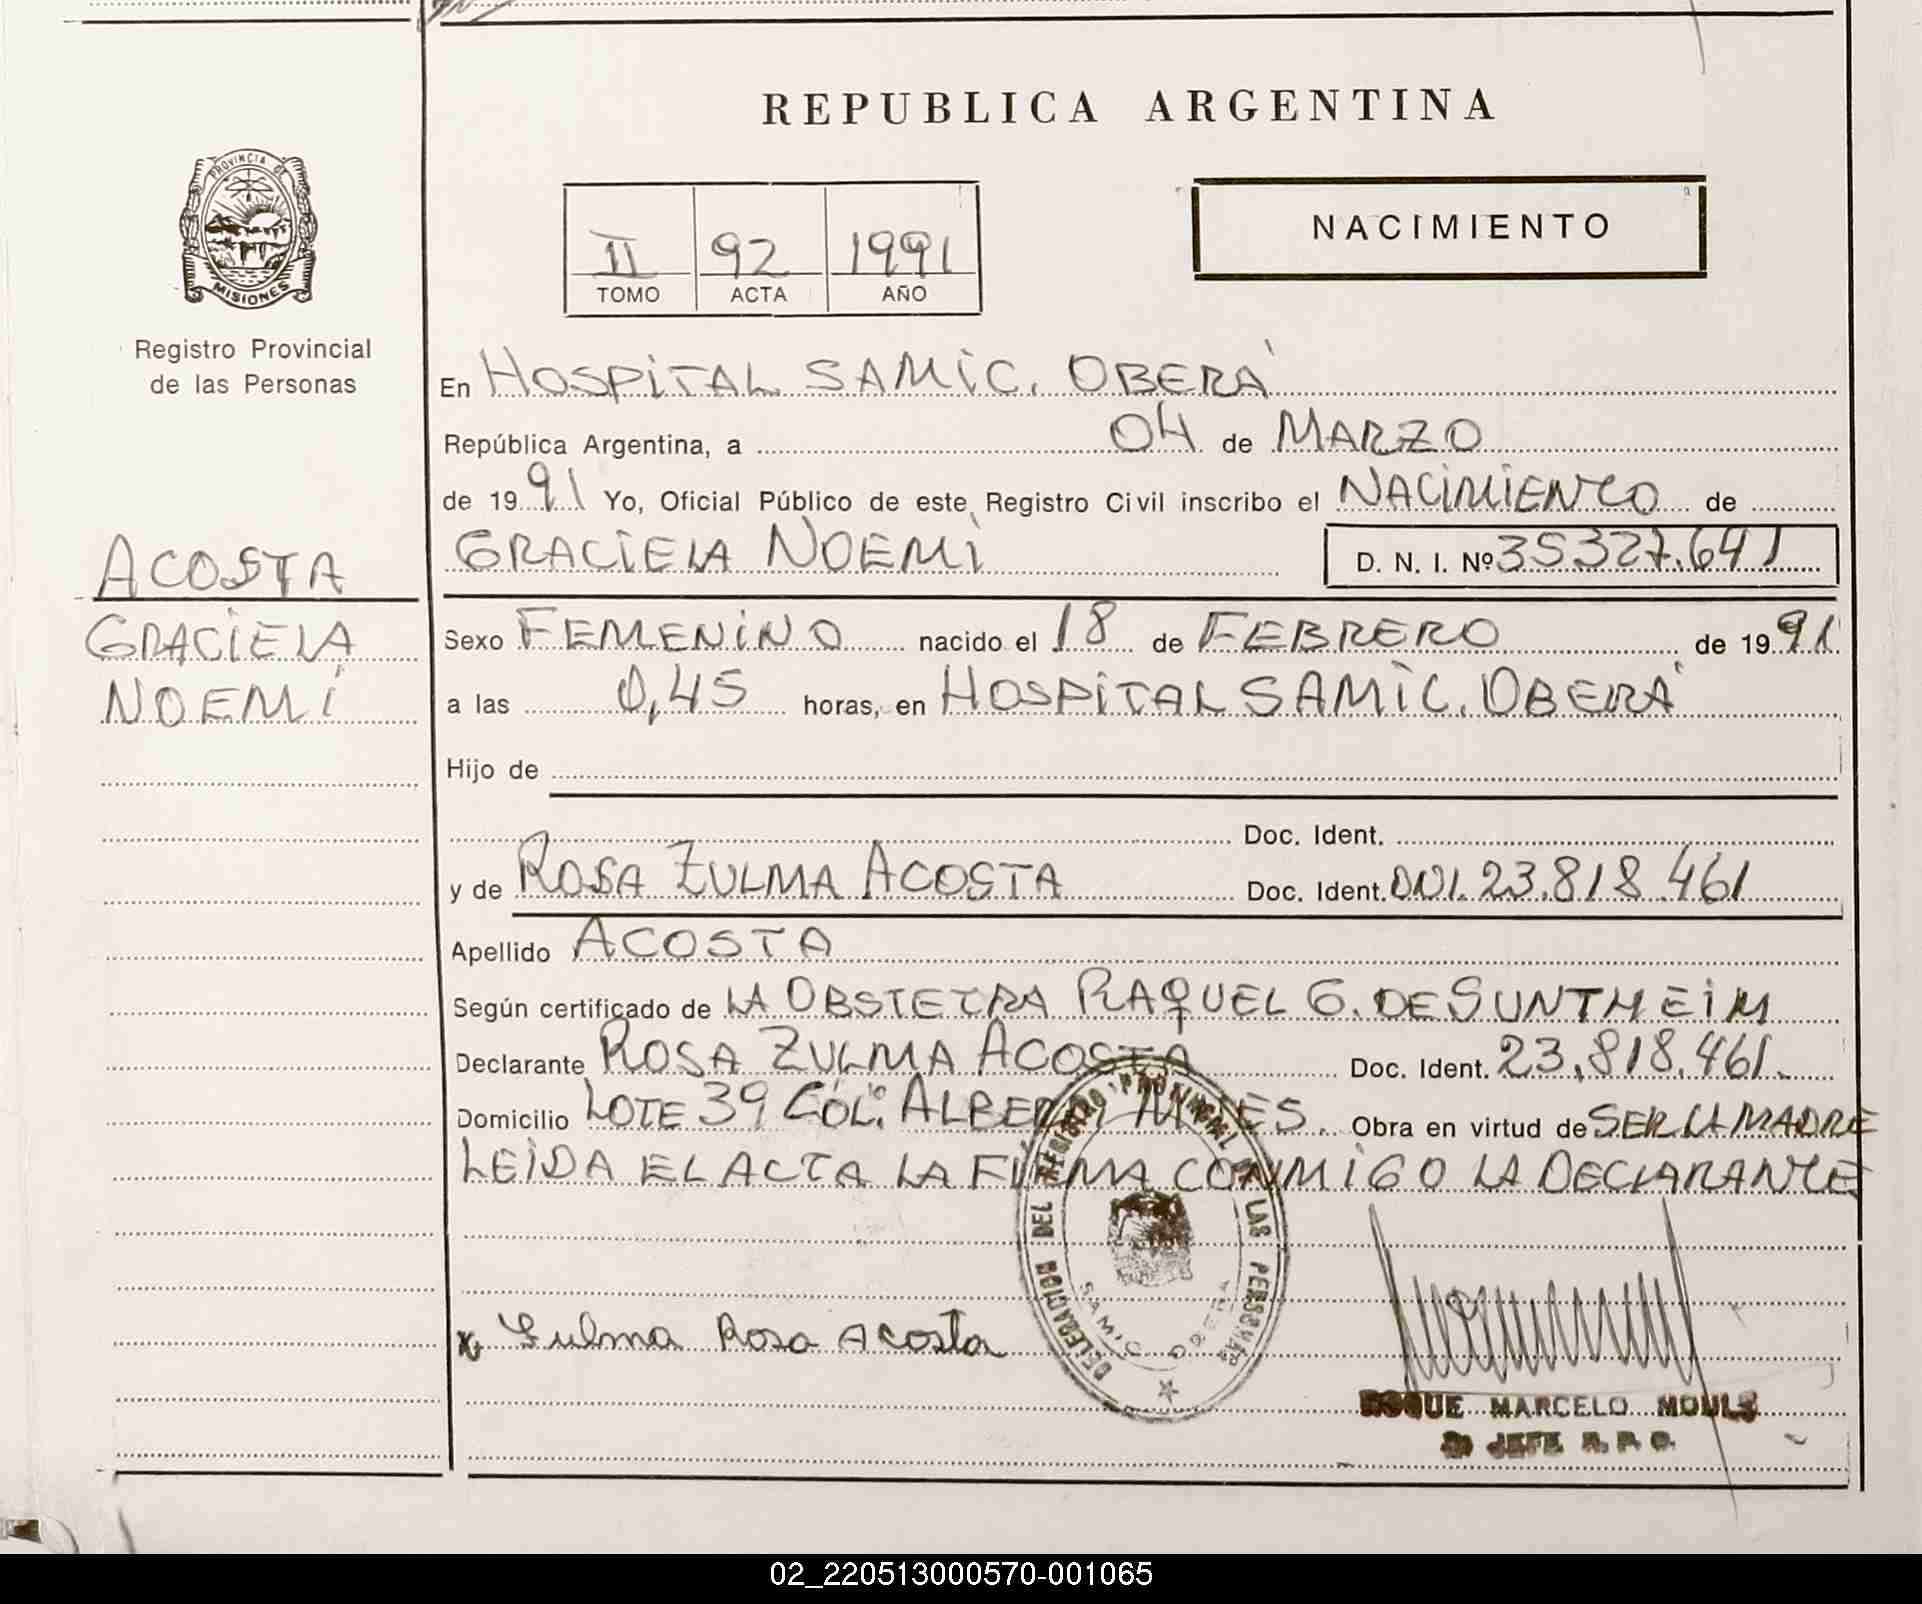 REPUBLICA ARGENTINA
PROVINCIA DE
MISIONES
Registro Provincial
de las Personas
II 92 1991
TOMO ACTA AÑO
NACIMIENTO
En HOSPITAL SAMIC. OBERÁ
República Argentina, a 04 de MARZO
de 1991 Yo, Oficial Público de este Registro Civil inscribo el NACIMIENTO de
GRACIELA NOEMÍ D. N. I. Nº 35327.641
ACOSTA
GRACIELA
NOEMÍ
Sexo FEMENINO nacido el 18 de FEBRERO de 1991
a las 0,45 horas, en HOSPITAL SAMIC. OBERÁ
Hijo de
Doc. Ident.
y de ROSA ZULMA ACOSTA Doc. Ident. DNI. 23.818.461
Apellido ACOSTA
Según certificado de LA OBSTETRA RAQUEL G. DE SUNTHEIM
Declarante ROSA ZULMA ACOSTA Doc. Ident. 23.818.461.
Domicilio LOTE 39 COL. ALBERDI Obra en virtud de SER LA MADRE
LEIDA EL ACTA LA FIRMA CONMIGO LA DECLARANTE
DELEGACION DEL REGISTRO PROVINCIAL LAS PERSONAS
SAMIC OBERA
x Zulma Rosa Acosta
ROQUE MARCELO
JEFE
02_220513000570-001065